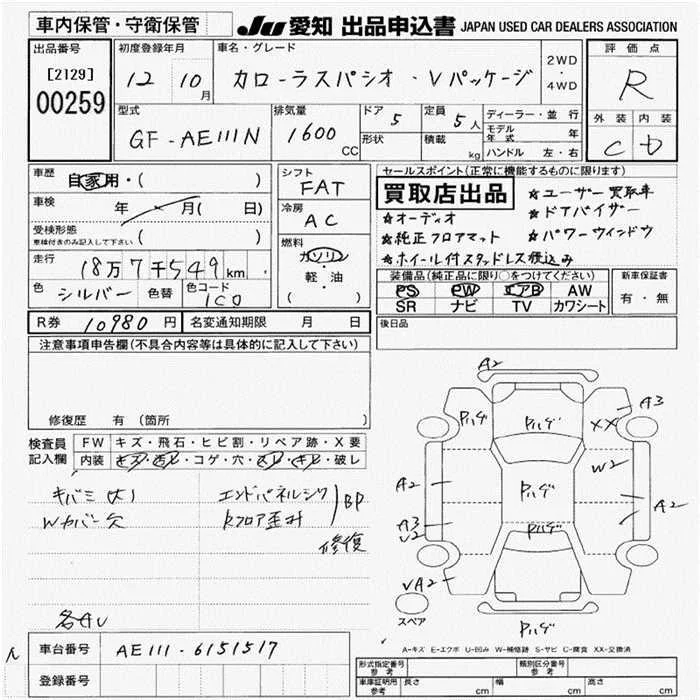 車内保管・守衛保管 JU 愛知 出品申込書 JAPAN USED CAR DEALERS ASSOCIATION
出品番号 初度登録年月 車名・グレード 評価点
[2129] 12 10月 カローラスパシオ・Vパッケージ 2WD・4WD R
00259
型式 排気量 ドア 5 定員 5人 ディーラー・並行 外装 内装
GF-AE111N 1600cc 形状 積載 kg モデル年式 年 C D
ハンドル 左・右
車歴 自家用・( ) シフト FAT セールスポイント(正常に機能するものに限ります)
車検 年 月( 日) 冷房 AC 買取店出品 ☆ユーザー買取車
受検形態 ( ) ☆オーディオ ☆ドアバイザー
車検付きのみ記入して下さい 燃料 ガソリン ☆純正フロアマット ☆パワーウインドウ
走行 18万7千549km 軽・油 ☆ホイール付スタッドレス積込み
色 シルバー 色替 色コード 1C0 ( ) 装備品(純正品に限り○をつけてください) 新車保証書
PS PW エアB AW 有・無
SR ナビ TV カワシート
R券 10980円 名変通知期限 月 日 後日品
注意事項申告欄(不具合内容等は具体的に記入して下さい)
修復歴 有 (箇所
検査員記入欄 FW キズ・飛石・ヒビ割・リペア跡・X要
内装 キズ・汚レ・コゲ・穴・スレ・キレ・破レ
キバミ 大 エンドパネルシワ BP
Wカバー欠 Rフロア歪み 修復
各AU
A2
Pハゲ Pハゲ XX A3
W2
A2 Pハゲ A2
A3 U2 Pハゲ
UA2
スペア Pハゲ
A-キズ E-エクボ U-凹み W-補修跡 S-サビ C-腐食 XX-交換済
車台番号 AE111-6151517
登録番号
形式指定番号 参考 類別区分番号 参考
車庫証明用 参考 長さ cm 幅 cm 高さ cm